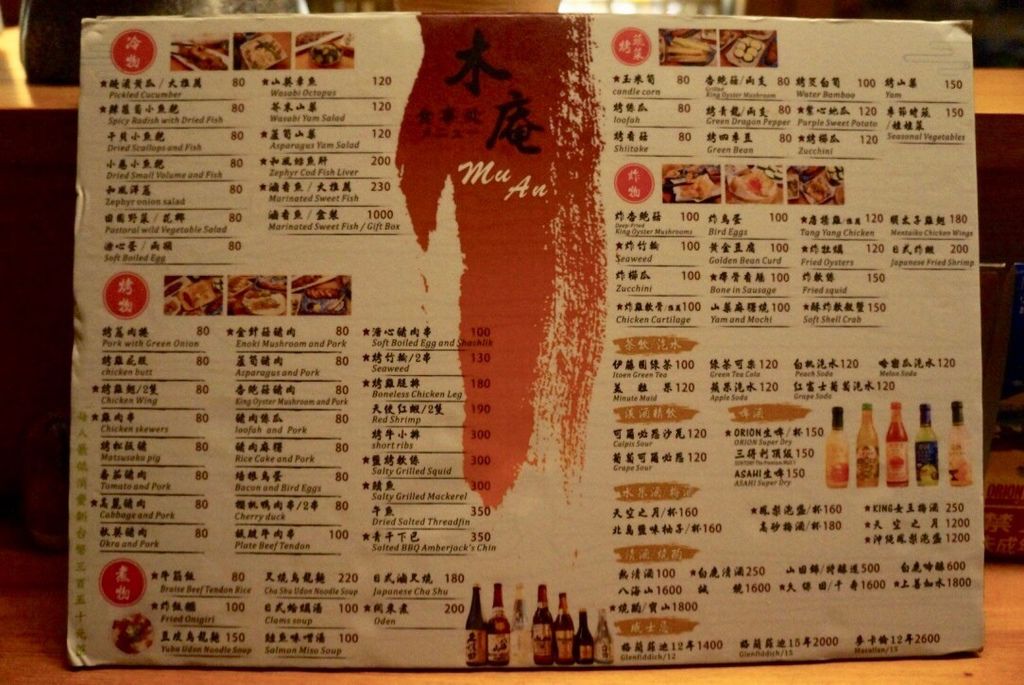 冷物
★酸漬黃瓜/大推薦 80
Pickled Cucumber
★辣蘿蔔小魚乾 80
Spicy Radish with Dried Fish
干貝小魚乾 80
Dried Scallops and Fish
小卷小魚乾 80
Dried Small Volume and Fish
和風洋蔥 80
Zephyr onion salad
田園野菜/花椰 80
Pastoral wild Vegetable Salad
溏心蛋/兩顆 80
Soft Boiled Egg
★山葵章魚 120
Wasabi Octopus
芥末山藥 120
Wasabi Yam Salad
★蘆筍山藥 120
Asparagus Yam Salad
★和風鱈魚肝 200
Zephyr Cod Fish Liver
★滷香魚/大推薦 230
Marinated Sweet Fish
滷香魚/盒裝 1000
Marinated Sweet Fish / Gift Box
木庵
食事處
Mu An
烤物
烤蔥肉捲 80
Pork with Green Onion
烤雞屁股 80
chicken butt
★烤雞翅/2隻 80
Chicken Wing
★雞肉串 80
Chicken skewers
★烤松阪豬 80
Matsusaka pig
番茄豬肉 80
Tomato and Pork
★高麗豬肉 80
Cabbage and Pork
秋葵豬肉 80
Okra and Pork
★金針菇豬肉 80
Enoki Mushroom and Pork
蘆筍豬肉 80
Asparagus and Pork
杏鮑菇豬肉 80
King Oyster Mushroom and Pork
豬肉絲瓜 80
loofah and Pork
豬肉麻糬 80
Rice Cake and Pork
培根鳥蛋 80
Bacon and Bird Eggs
櫻桃鴨肉串/2串 80
Cherry duck
鐵板牛筋 100
Plate Beef Tendon
★溏心豬肉串 100
Soft Boiled Egg and Shashlik
★烤竹輪/2串 130
Seaweed
★烤雞腿排 180
Boneless Chicken Leg
天使紅蝦/2隻 190
Red Shrimp
烤牛小排 300
short ribs
★鹽烤軟絲 300
Salty Grilled Squid
★鯖魚 300
Salty Grilled Mackerel
午魚 350
Dried Salted Threadfin
★青干下巴 350
Salted BBQ Amberjack's Chin
煮物
★牛筋飯 80
Braise Beef Tendon Rice
★炸飯糰 100
Fried Onigiri
豆皮烏龍麵 150
Yuba Udon Noodle Soup
叉燒烏龍麵 220
Cha Shu Udon Noodle Soup
日式蛤蠣湯 100
Clams soup
鮭魚味噌湯 100
Salmon Miso Soup
日式滷叉燒 180
Japanese Cha Shu
★關東煮 200
Oden
烤蔬菜
★玉米筍 80
candle corn
烤絲瓜 80
loofah
烤香菇 80
Shiitake
杏鮑菇/兩支 80
Grilled King Oyster Mushroom
烤青龍/兩支 80
Green Dragon Pepper
烤四季豆 80
Green Bean
烤茭白筍 100
Water Bamboo
★紫心地瓜 100
Purple Sweet Potato
★烤櫛瓜 100
Zucchini
烤山藥 150
Yam
季節時蔬/娃娃菜 150
Seasonal Vegetables
炸物
炸杏鮑菇 100
Deep Fried King Oyster Mushrooms
★炸竹輪 100
Seaweed
炸櫛瓜 100
Zucchini
★炸雞軟骨/推薦 100
Chicken Cartilage
炸鳥蛋 100
Bird Eggs
黃金豆腐 100
Golden Bean Curd
★帶骨香腸 100
Bone in Sausage
山藥麻糬燒 100
Yam and Mochi
★唐揚雞/推薦 120
Tang Yang Chicken
★炸牡蠣 120
Fried Oysters
炸軟絲 150
Fried squid
★酥炸軟殼蟹 150
Soft Shell Crab
明太子雞翅 180
Mentaiko Chicken Wings
日式炸蝦 200
Japanese Fried Shrimp
茶飲/汽水
伊藤園綠茶 100
Itoen Green Tea
美粒果 120
Minute Maid
綠茶可樂 120
Green Tea Cola
蘋果汽水 120
Apple Soda
白桃汽水 120
Peach Soda
紅富士葡萄汽水 120
Grape Soda
哈密瓜汽水 120
Melon Soda
漢酒精飲
可爾必思沙瓦 120
Calpis Sour
葡萄可爾必思 120
Grape Sour
啤酒
★ORION生啤/杯 150
ORION Super Dry
三得利頂級 150
SUNTORY The Premium Malt's
ASAHI生啤 150
ASAHI Super Dry
水果酒/梅酒
天空之月/杯 160
北島鹽味柚子/杯 160
★鳳梨泡盛/杯 160
高砂梅酒/杯 180
★KING女王梅酒 250
★天空之月 1200
★沖繩鳳梨泡盛 1200
清酒/燒酌
熱清酒 100
八海山 1600
★燒酌/寶山 1800
★白鹿清酒 250
誠鏡 1600
山田錦/特釀造 500
★久保田/千壽 1600
白鹿吟釀 600
★上善如水 1800
威士忌
格蘭菲迪12年 1400
Glenfiddich/12
格蘭菲迪15年 2000
Glenfiddich/15
麥卡倫12年 2600
Macallan/15